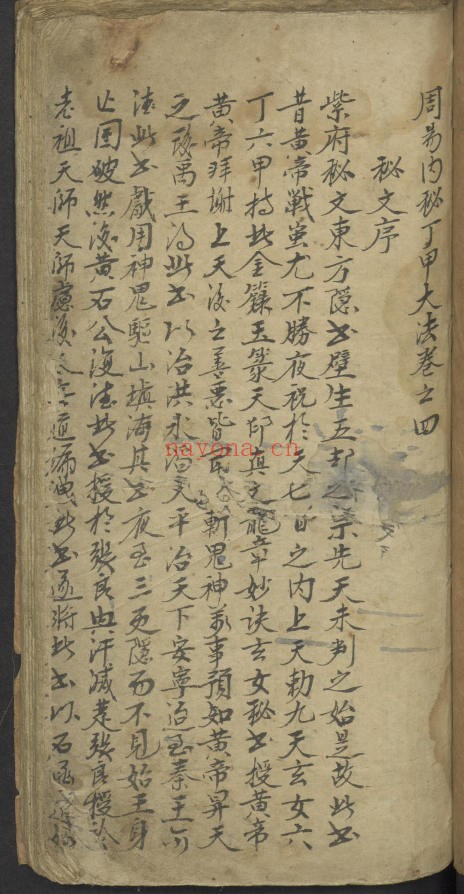 周易内秘丁甲大法卷之四
秘文序
紫府秘文東方隱书壁生五却之宗先天未判之始是故此书
昔黄帝戦蚩尤不勝夜祝於天七日之内上天勅九天玄女六
丁六甲持此金籙玉篆天印真文龍章妙訣玄女秘书授黄帝
黄帝拜谢上天後之善悪皆斬鬼神万事預知黄帝昇天
之後禹王得此书以治洪水治天平治天下安寧迨至秦王
法此书戯用神鬼驅山塡海其书夜至三更隱而不見始王身
亡国破然後黄石公復法此书授於張良由汗滅楚張良授於
老祖天師天師慮後道漏洩此书遂将此书以石函
nayona.cn